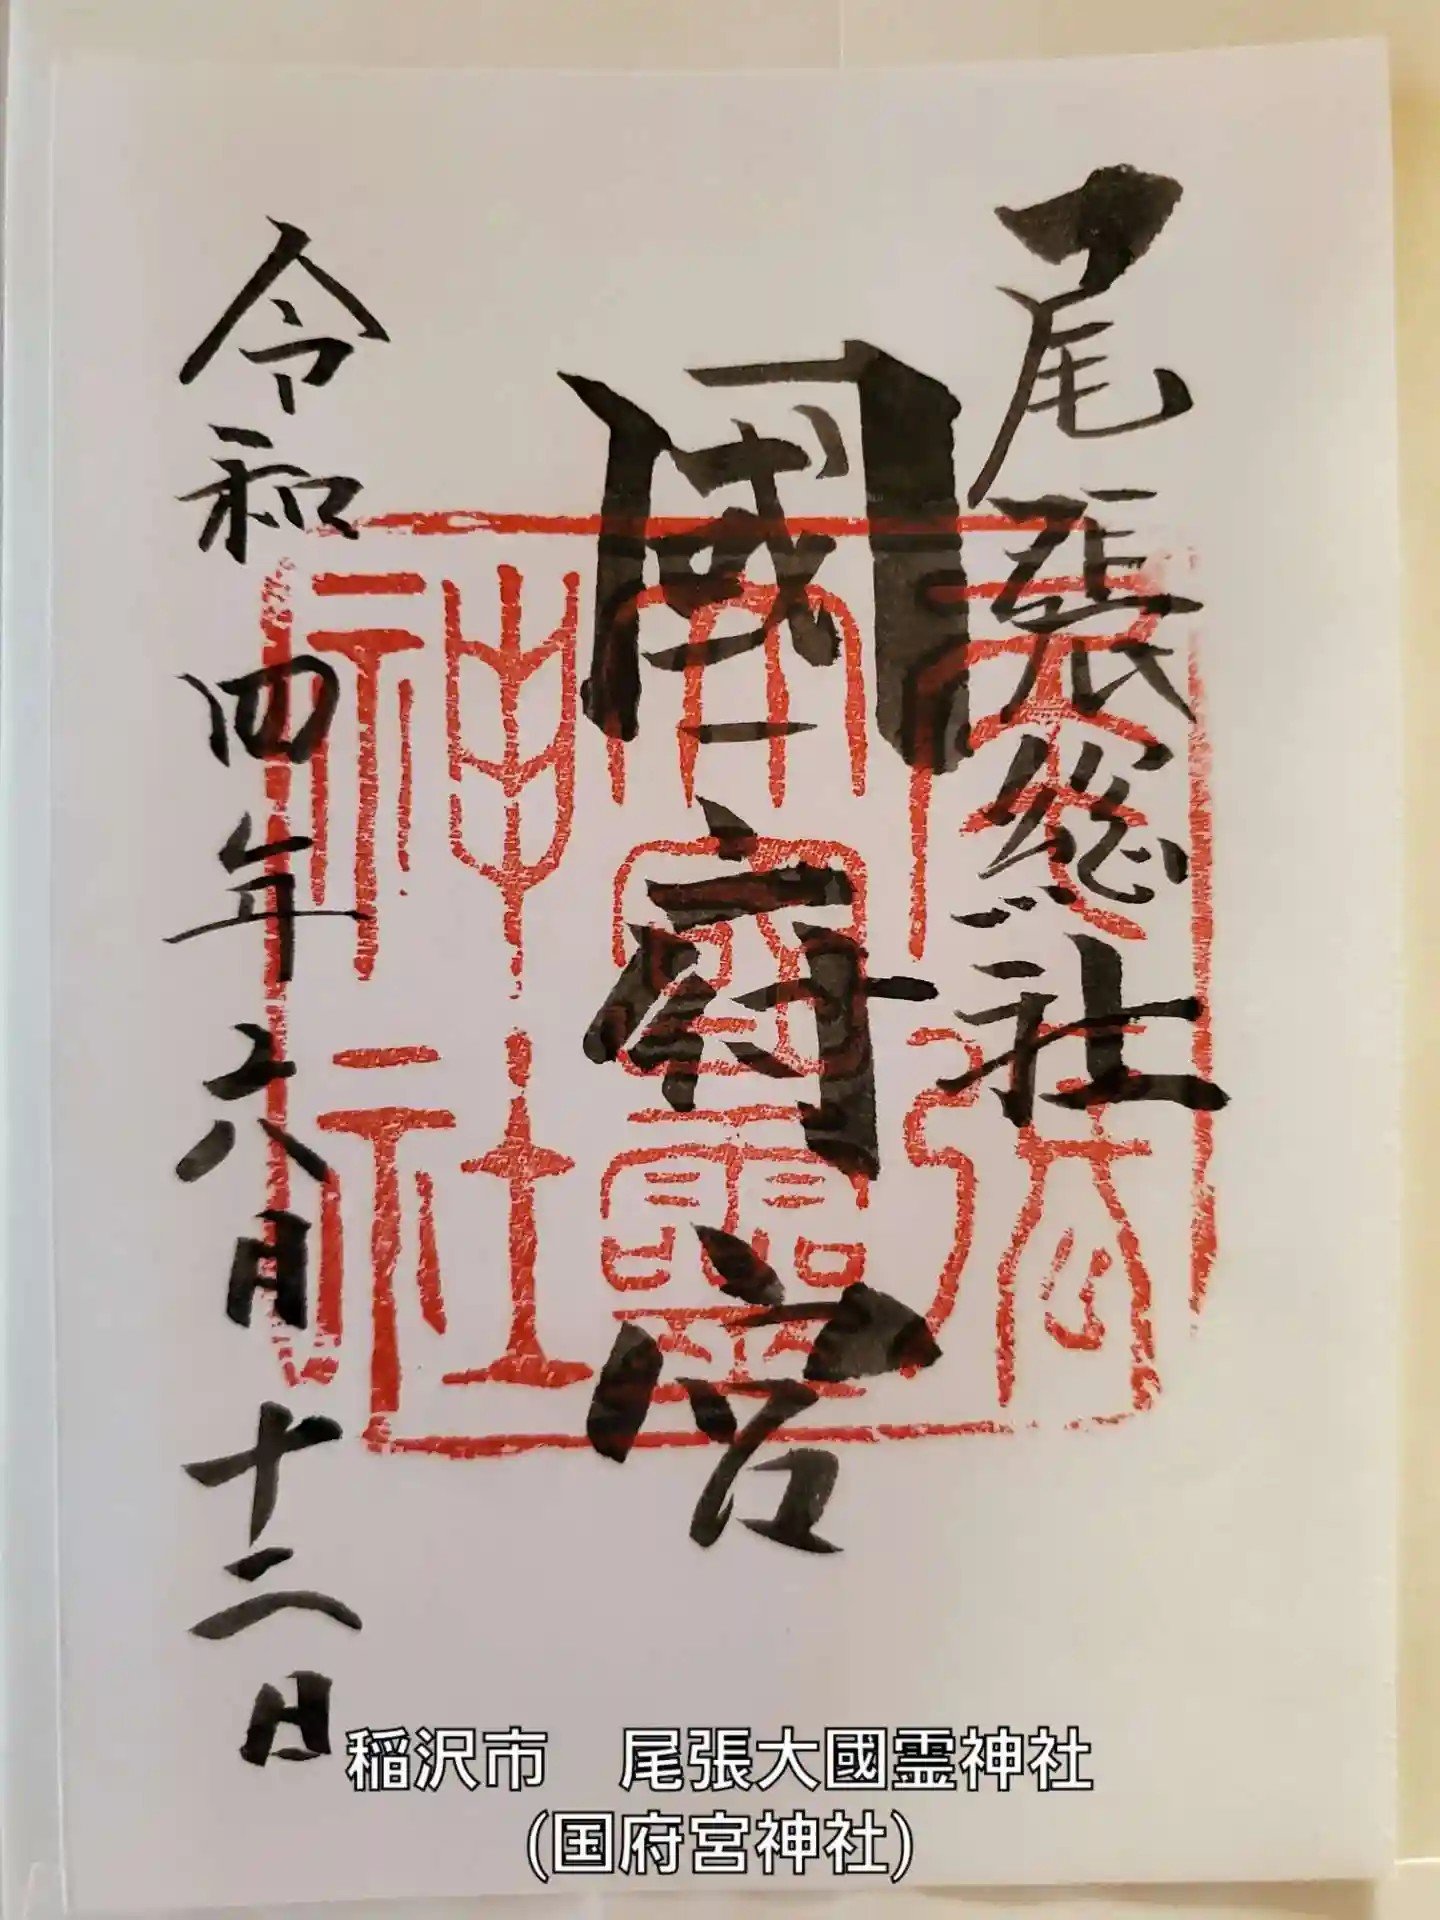 尾張総社
國府宮
令和四年六月十二日
尾張
大國霊
神社
稲沢市　尾張大國霊神社
(国府宮神社)